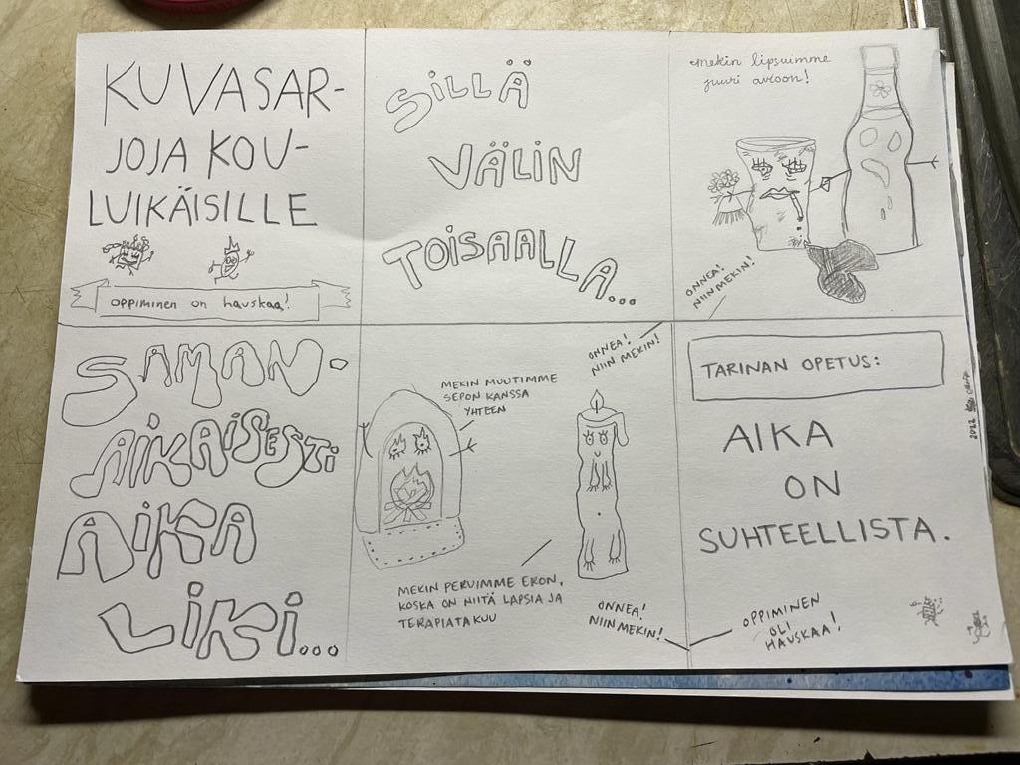 KUVASAR-
JOJA KOU-
LUIKÄISILLE
OPPIMINEN ON HAUSKAA!
SILLÄ
VÄLIN
TOISAALLA...
mekin lipsuimme
juuri avioon!
ONNEA!
NIIN MEKIN!
SAMAN-
AIKAISESTI
AIKA
LIKI...
MEKIN MUUTIMME
SEPON KANSSA
YHTEEN
ONNEA!
NIIN MEKIN!
MEKIN PERUIMME ERON,
KOSKA ON NIITÄ LAPSIA JA
TERAPIATAKUU
ONNEA!
NIIN MEKIN!
TARINAN OPETUS:
AIKA
ON
SUHTEELLISTA.
OPPIMINEN
OLI
HAUSKAA!
2022